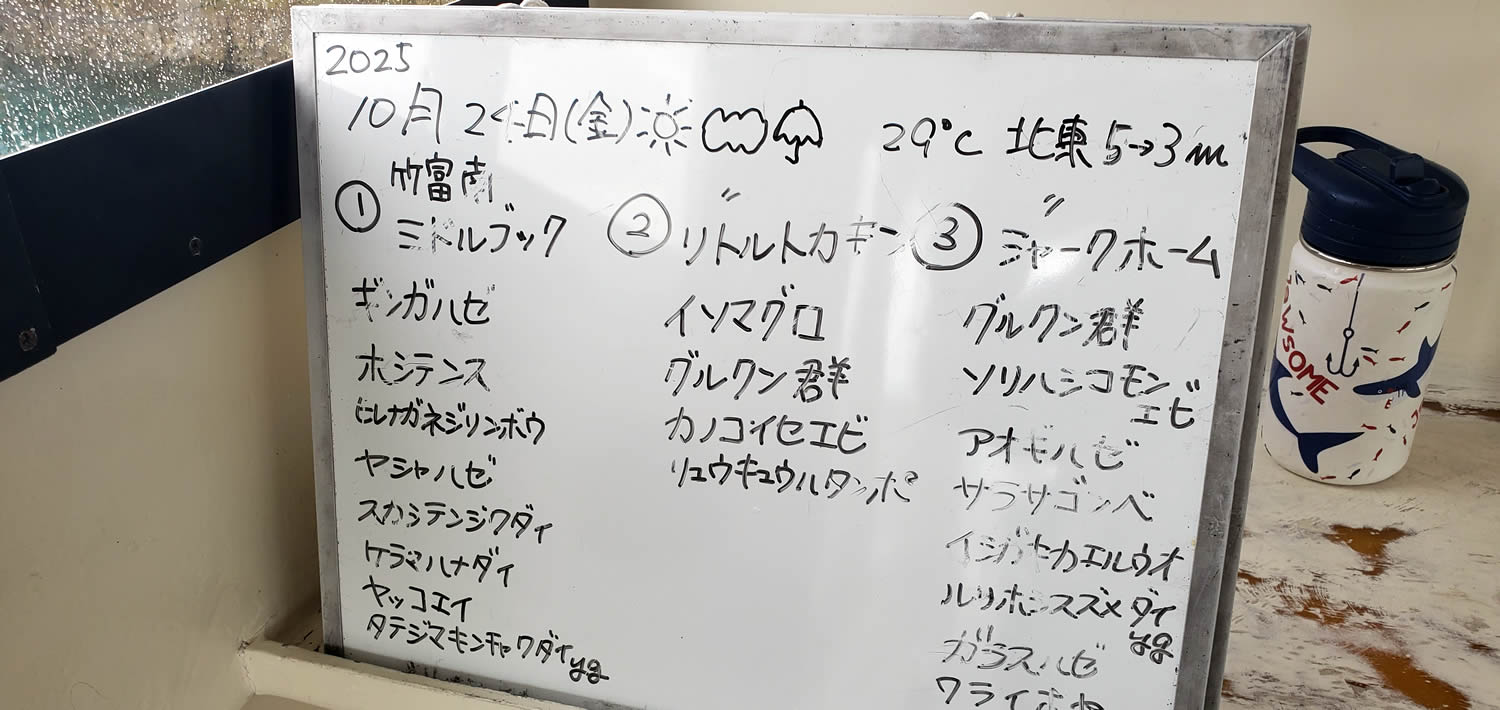 2025
10月24日(金) 29℃ 北東5→3m
竹富南
① ミドルブック
ギンガハゼ
ホシテンス
ヒレナガネジリンボウ
ヤシャハゼ
スカシテンジクダイ
ケラマハナダイ
ヤッコエイ
タテジマキンチャクダイyg
② 〃
リトルトカキン
イソマグロ
グルクン群
カノコイセエビ
リュウキュウハタンポ
③ 〃
シャークホーム
グルクン群
ソリハシコモンエビ
アオギハゼ
サラサゴンベ
イシガキカエルウオ
ルリホシスズメダイ
yg
ガラスハゼ
クライ
AWSOME